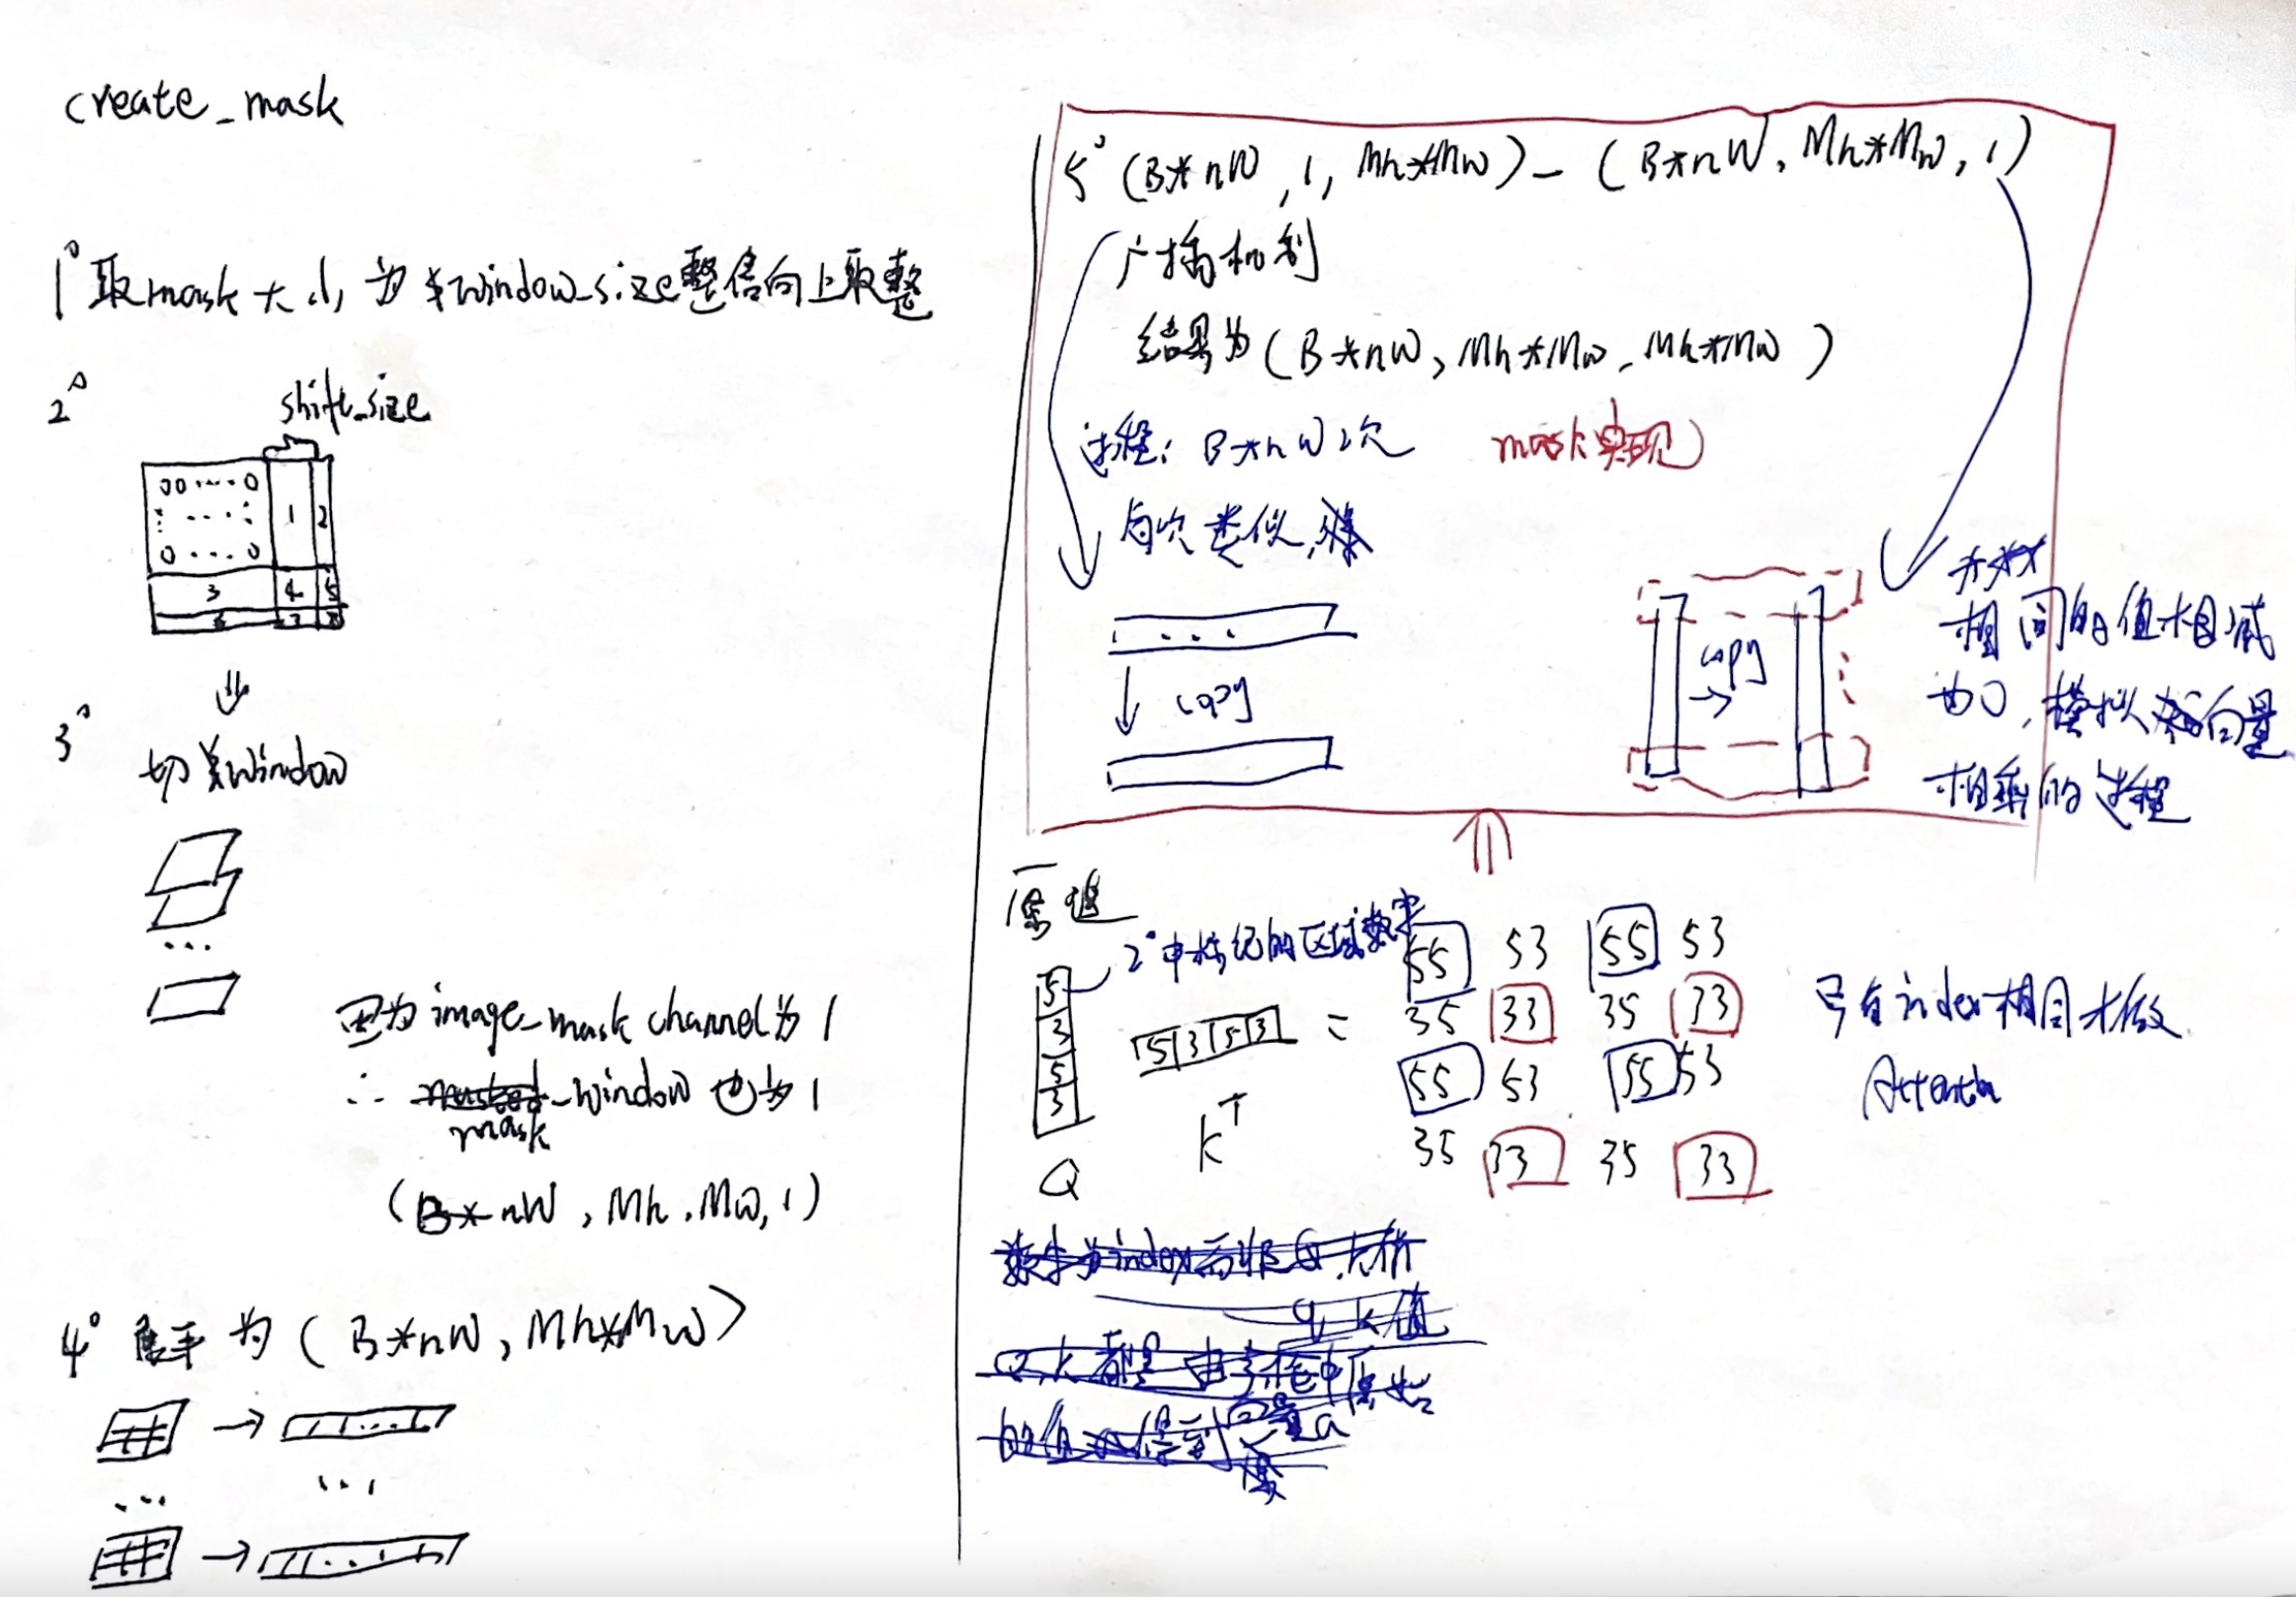 create_mask
1° 取mask大小为window_size整倍向上取整
2°
shift_size
00....0
0...0
1
2
3
4
5
6
7
8
3°
切window
...
因为image_mask channel为1
∴ mask_window也为1
(nW, Mh, Mw, 1)
4° 展平为(B*nW, Mh*Mw)
...
5° (B*nW, 1, Mh*Mw) - (B*nW, Mh*Mw, 1)
广播机制
结果为(B*nW, Mh*Mw, Mh*Mw)
过程: B*nW次
mask实现
每次类似,
copy
copy
相同的值相减
为0, 模拟向量
相乘的过程
原理
2°中标记的区域数字
5
3
5
3
Q
5 3 5 3
K^T
=
55 53 55 53
35 33 35 33
55 53 55 53
35 33 35 33
只有index相同才做
Attention